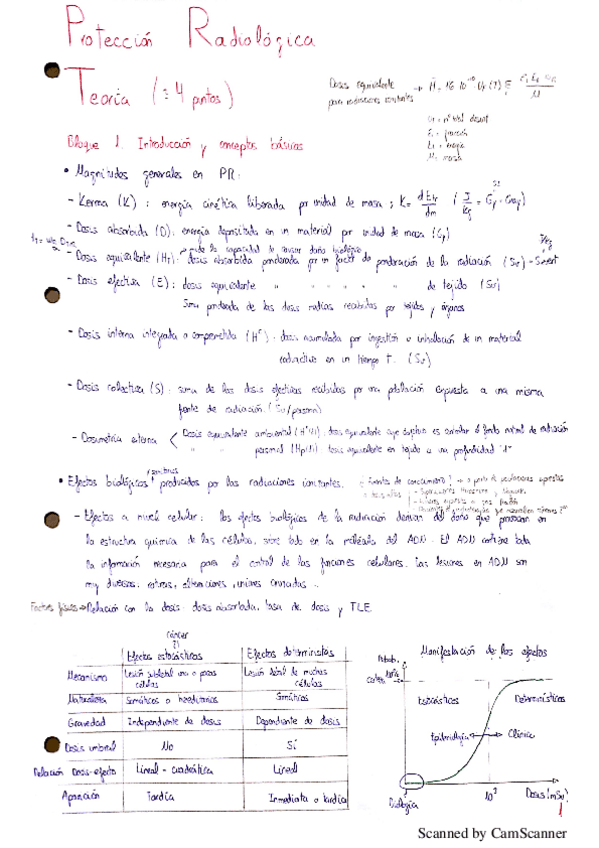 Protección Radiológica
Teoría (≈ 4 puntos)
Dosis equivalente
para radiaciones ionizantes
M = masa
Bloque 1. Introducción y conceptos básicos
• Magnitudes generales en PR:
- Kerma (K) : energía cinética liberada por unidad de masa ; K = dEtr/dm (J/kg = Gy - Gray)
- Dosis absorbida (D): energía depositada en un material por unidad de masa (Gy)
mide la capacidad de causar daño biológico
- Dosis equivalente (HT): dosis absorbida ponderada por un factor de ponderación de la radiación (Sv) - Sievert
- Dosis efectiva (E): dosis equivalente " " " " " de tejido (Sv)
Suma ponderada de las dosis medias recibidas por tejidos y órganos
- Dosis interna integrada o comprometida (H): dosis acumulada por ingestión o inhalación de un material
radiactivo en un tiempo t. (Sv)
- Dosis colectiva (S): suma de las dosis efectivas recibidas por una población expuesta a una misma
fuente de radiación. (Sv/persona)
- Dosimetría externa < Dosis equivalente ambiental (H*(d)): dosis equivalente cuyo objetivo es el fondo natural de radiación
" " personal (Hp(d)) dosis equivalente en tejido a una profundidad "d"
• Efectos biológicos producidos por las radiaciones ionizantes.
- Efectos a nivel celular: los efectos biológicos de la radiación derivan del daño que producen en
la estructura química de las células, sobre todo en la molécula del ADN. El ADN contiene toda
la información necesaria para el control de las funciones celulares. Las lesiones en ADN son
muy diversas: roturas, alteraciones, uniones cruzadas...
Factores físicos → Relación con la dosis: dosis absorbida, tasa de dosis y TLE
cáncer
Efectos estocásticos Efectos deterministas
Mecanismo Lesión subletal una o pocas células Lesión letal de muchas células
Naturaleza Somáticos o hereditarios Somáticos
Gravedad Independiente de dosis Dependiente de dosis
Dosis umbral No Sí
Relación Dosis-efecto Lineal - cuadrática Lineal
Aparición Tardía Inmediata o tardía
Manifestación de los efectos
Probab.
100%
Estocásticos Deterministas
Epidemiología Clínica
Biológica 10³ Dosis (mSv)
1
Scanned by CamScanner